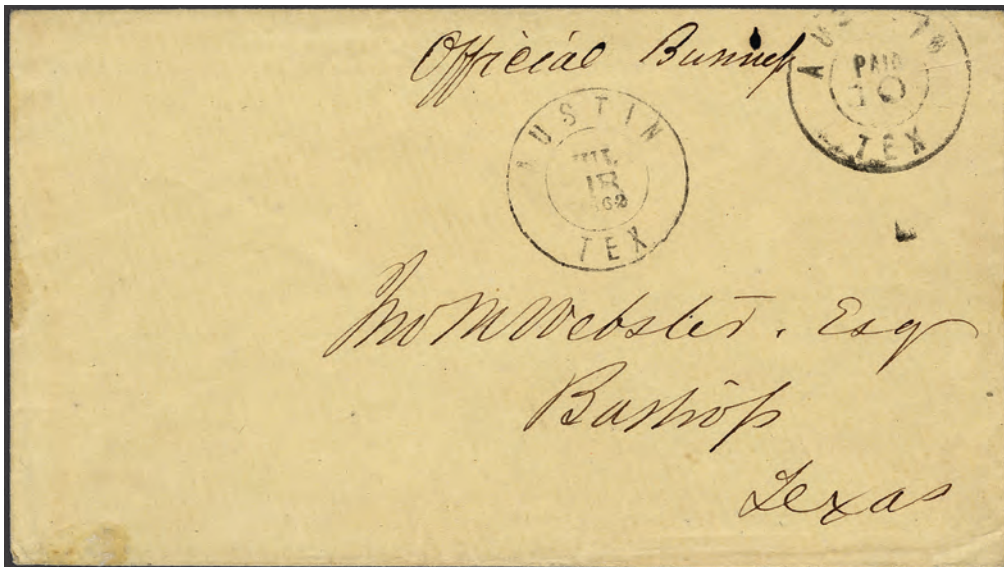 Official Business
AUSTIN
PAID
10
TEX
AUSTIN
JUL
18
1862
TEX
Jno M Webster. Esq
Bastrop
Texas